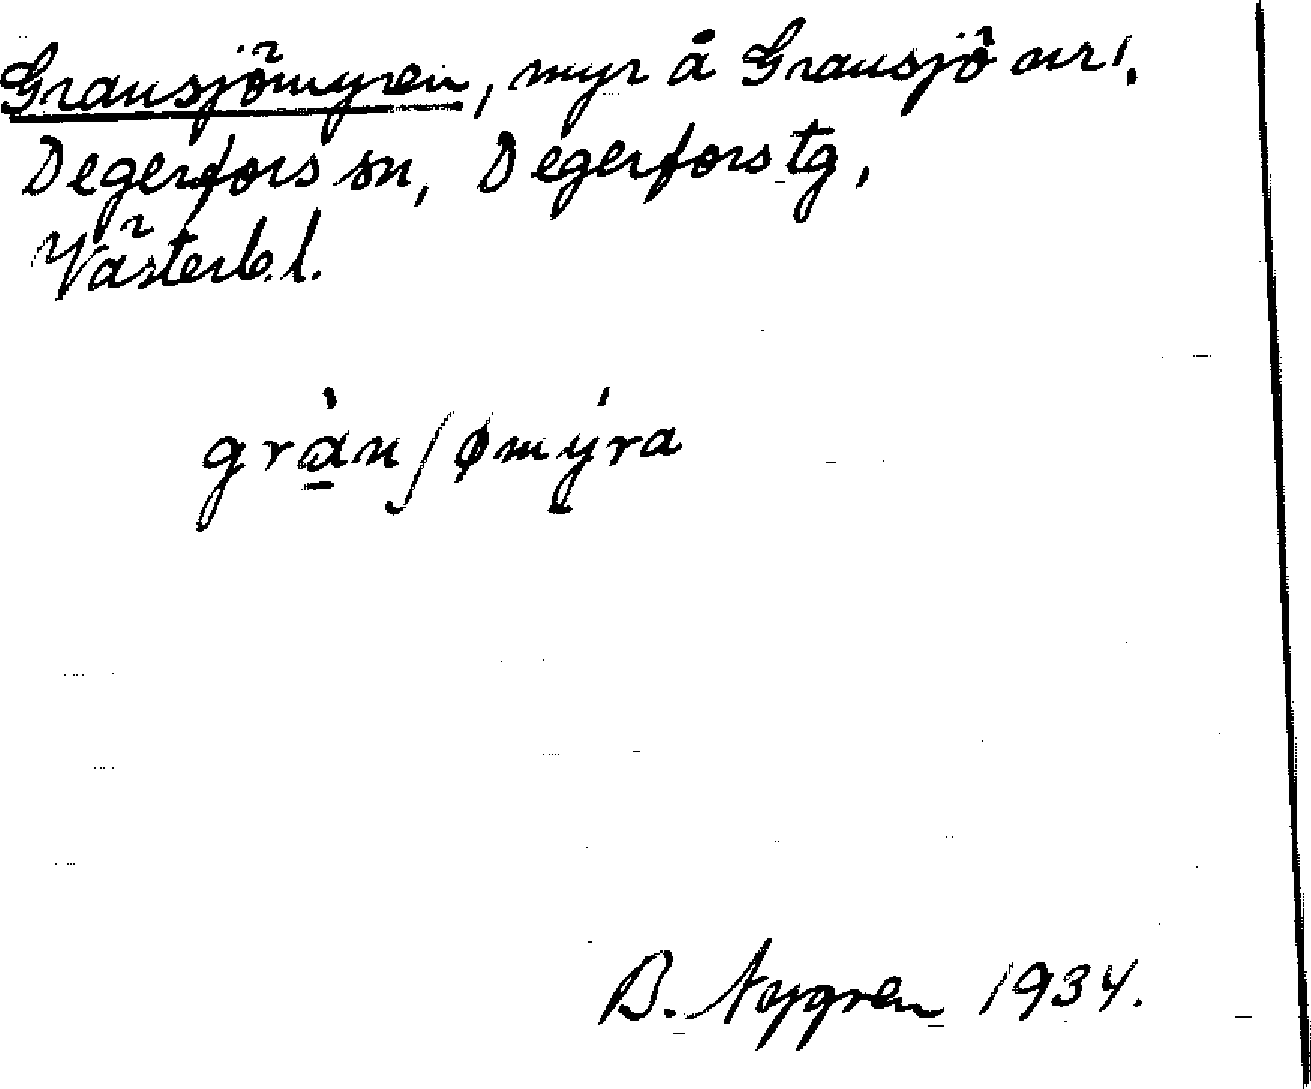 Gransjömyren, myr å Gransjö nr 1.
Degerfors sn, Degerfors tg,
Västerb. l.
gràn∫ømýra
B. Nygren 1934.